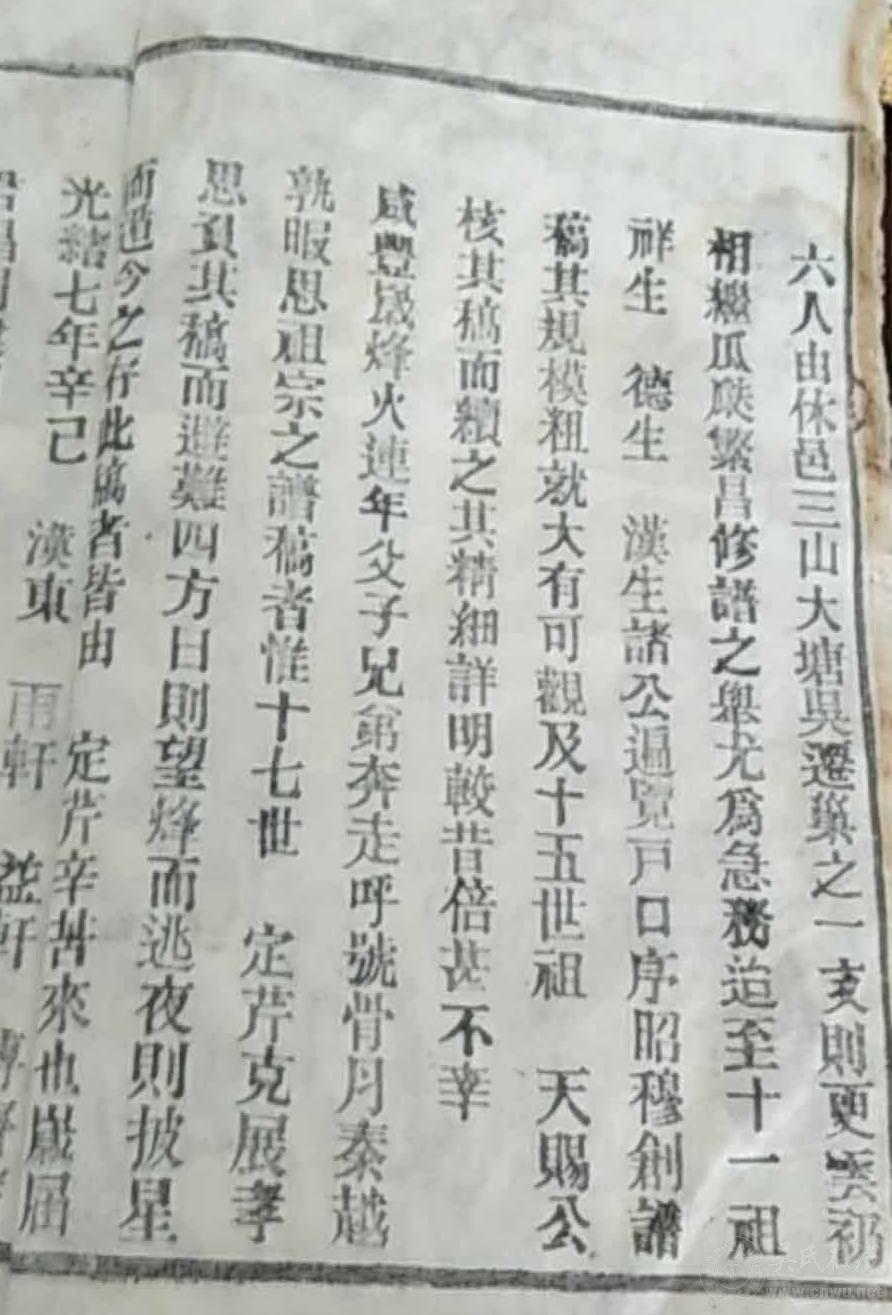 六人由休邑三山大塘吳遷巢之一支則更雲礽
相繼瓜瓞繁昌修譜之舉尤爲急務迨至十一祖
祥生　德生　漢生諸公遍覽戸口序昭穆創譜
稿其規模粗就大有可觀及十五世祖　天賜公
核其稿而續之其精細詳明較昔倍甚不幸
咸豐歲烽火連年父子兄弟奔走呼號骨月秦越
孰暇思祖宗之譜稿者惟十七世　定芹克展孝
思負其稿而避難四方日則望烽而逃夜則披星
而道今之存此稿者皆由　定芹辛苦來也歲届
光緒七年辛巳　漢東　雨軒　益軒
www.cnwu.net